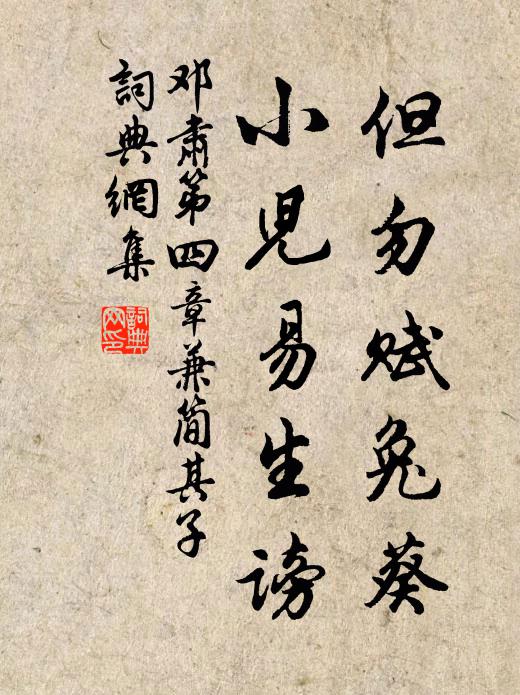 但勿赋兔葵
小児易生谤
邓肃第四章兼简其子
詞典網集
詞典网印